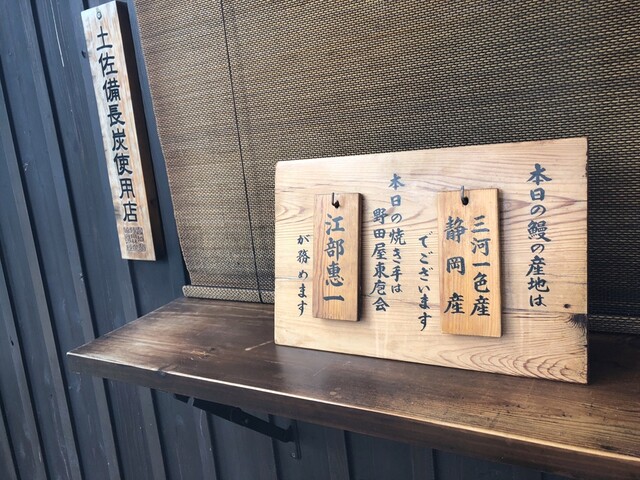 土佐備長炭使用店
本日の鰻の産地は
三河一色産
静岡産
でございます
本日の焼き手は
野田屋東庖会
江部惠一
が務めます